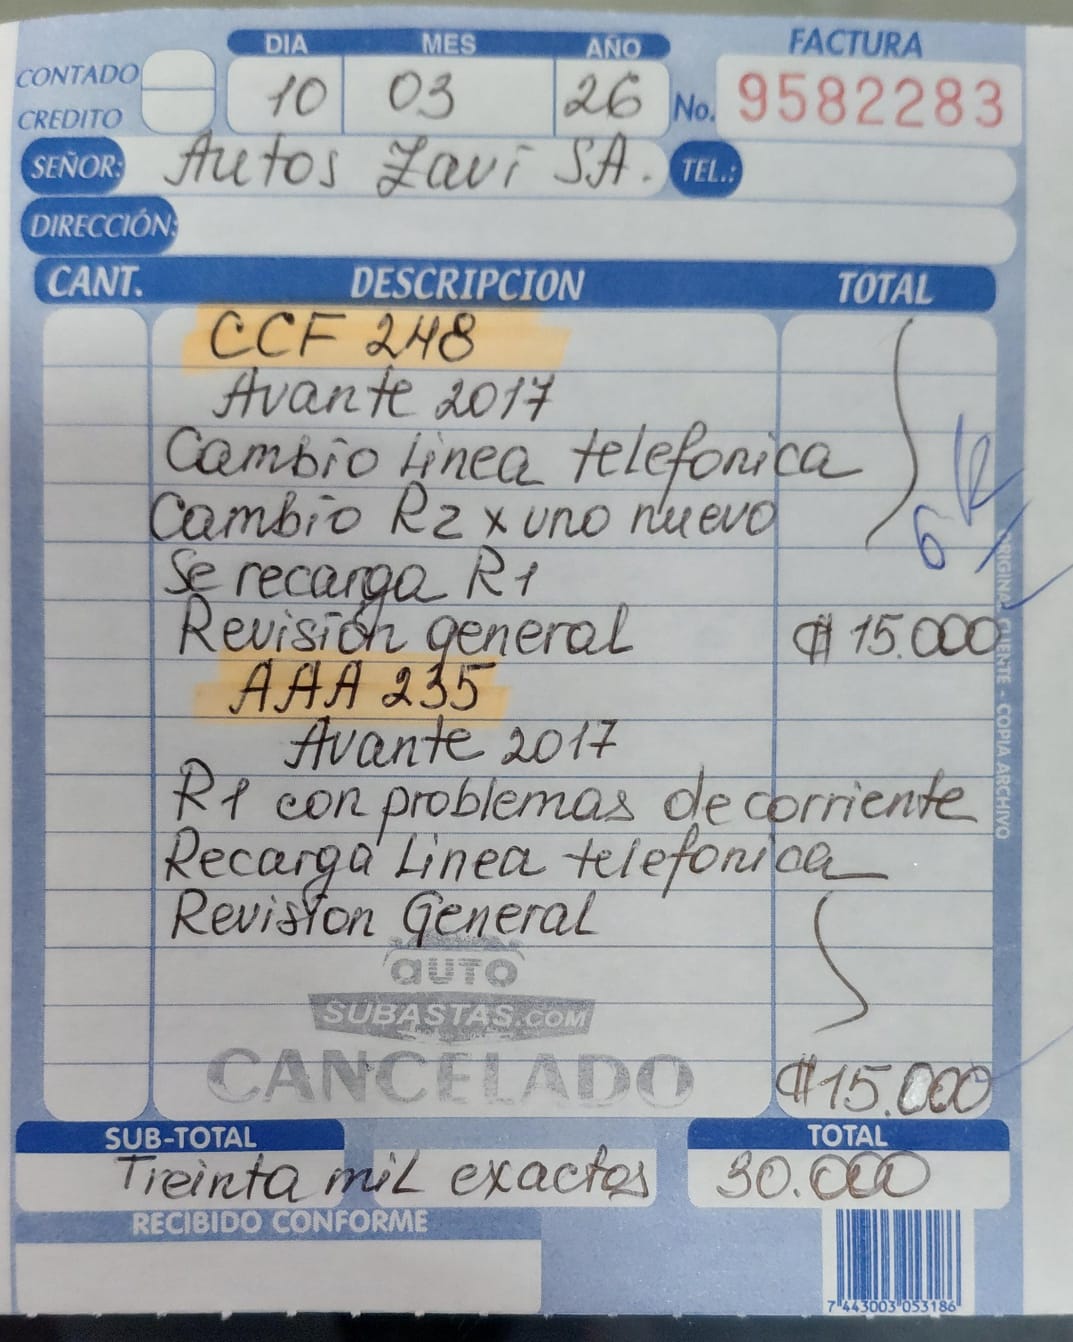 DIA MES AÑO FACTURA
CONTADO
CREDITO
10 03 26 No. 9582283
SEÑOR: Autos Zavi SA. TEL.:
DIRECCIÓN:
CANT. DESCRIPCION TOTAL
CCF 248
Avante 2017
Cambio Linea telefonica
Cambio R2 x uno nuevo
Se recarga R1
Revisión general ₡ 15.000
AAA 235
Avante 2017
R1 con problemas de corriente
Recarga Linea telefonica
Revision General
AUTO
SUBASTAS.COM
CANCELADO
₡15.000
SUB-TOTAL TOTAL
Treinta mil exactos 30.000
RECIBIDO CONFORME
ORIGINAL CLIENTE - COPIA ARCHIVO
7 443003 053186